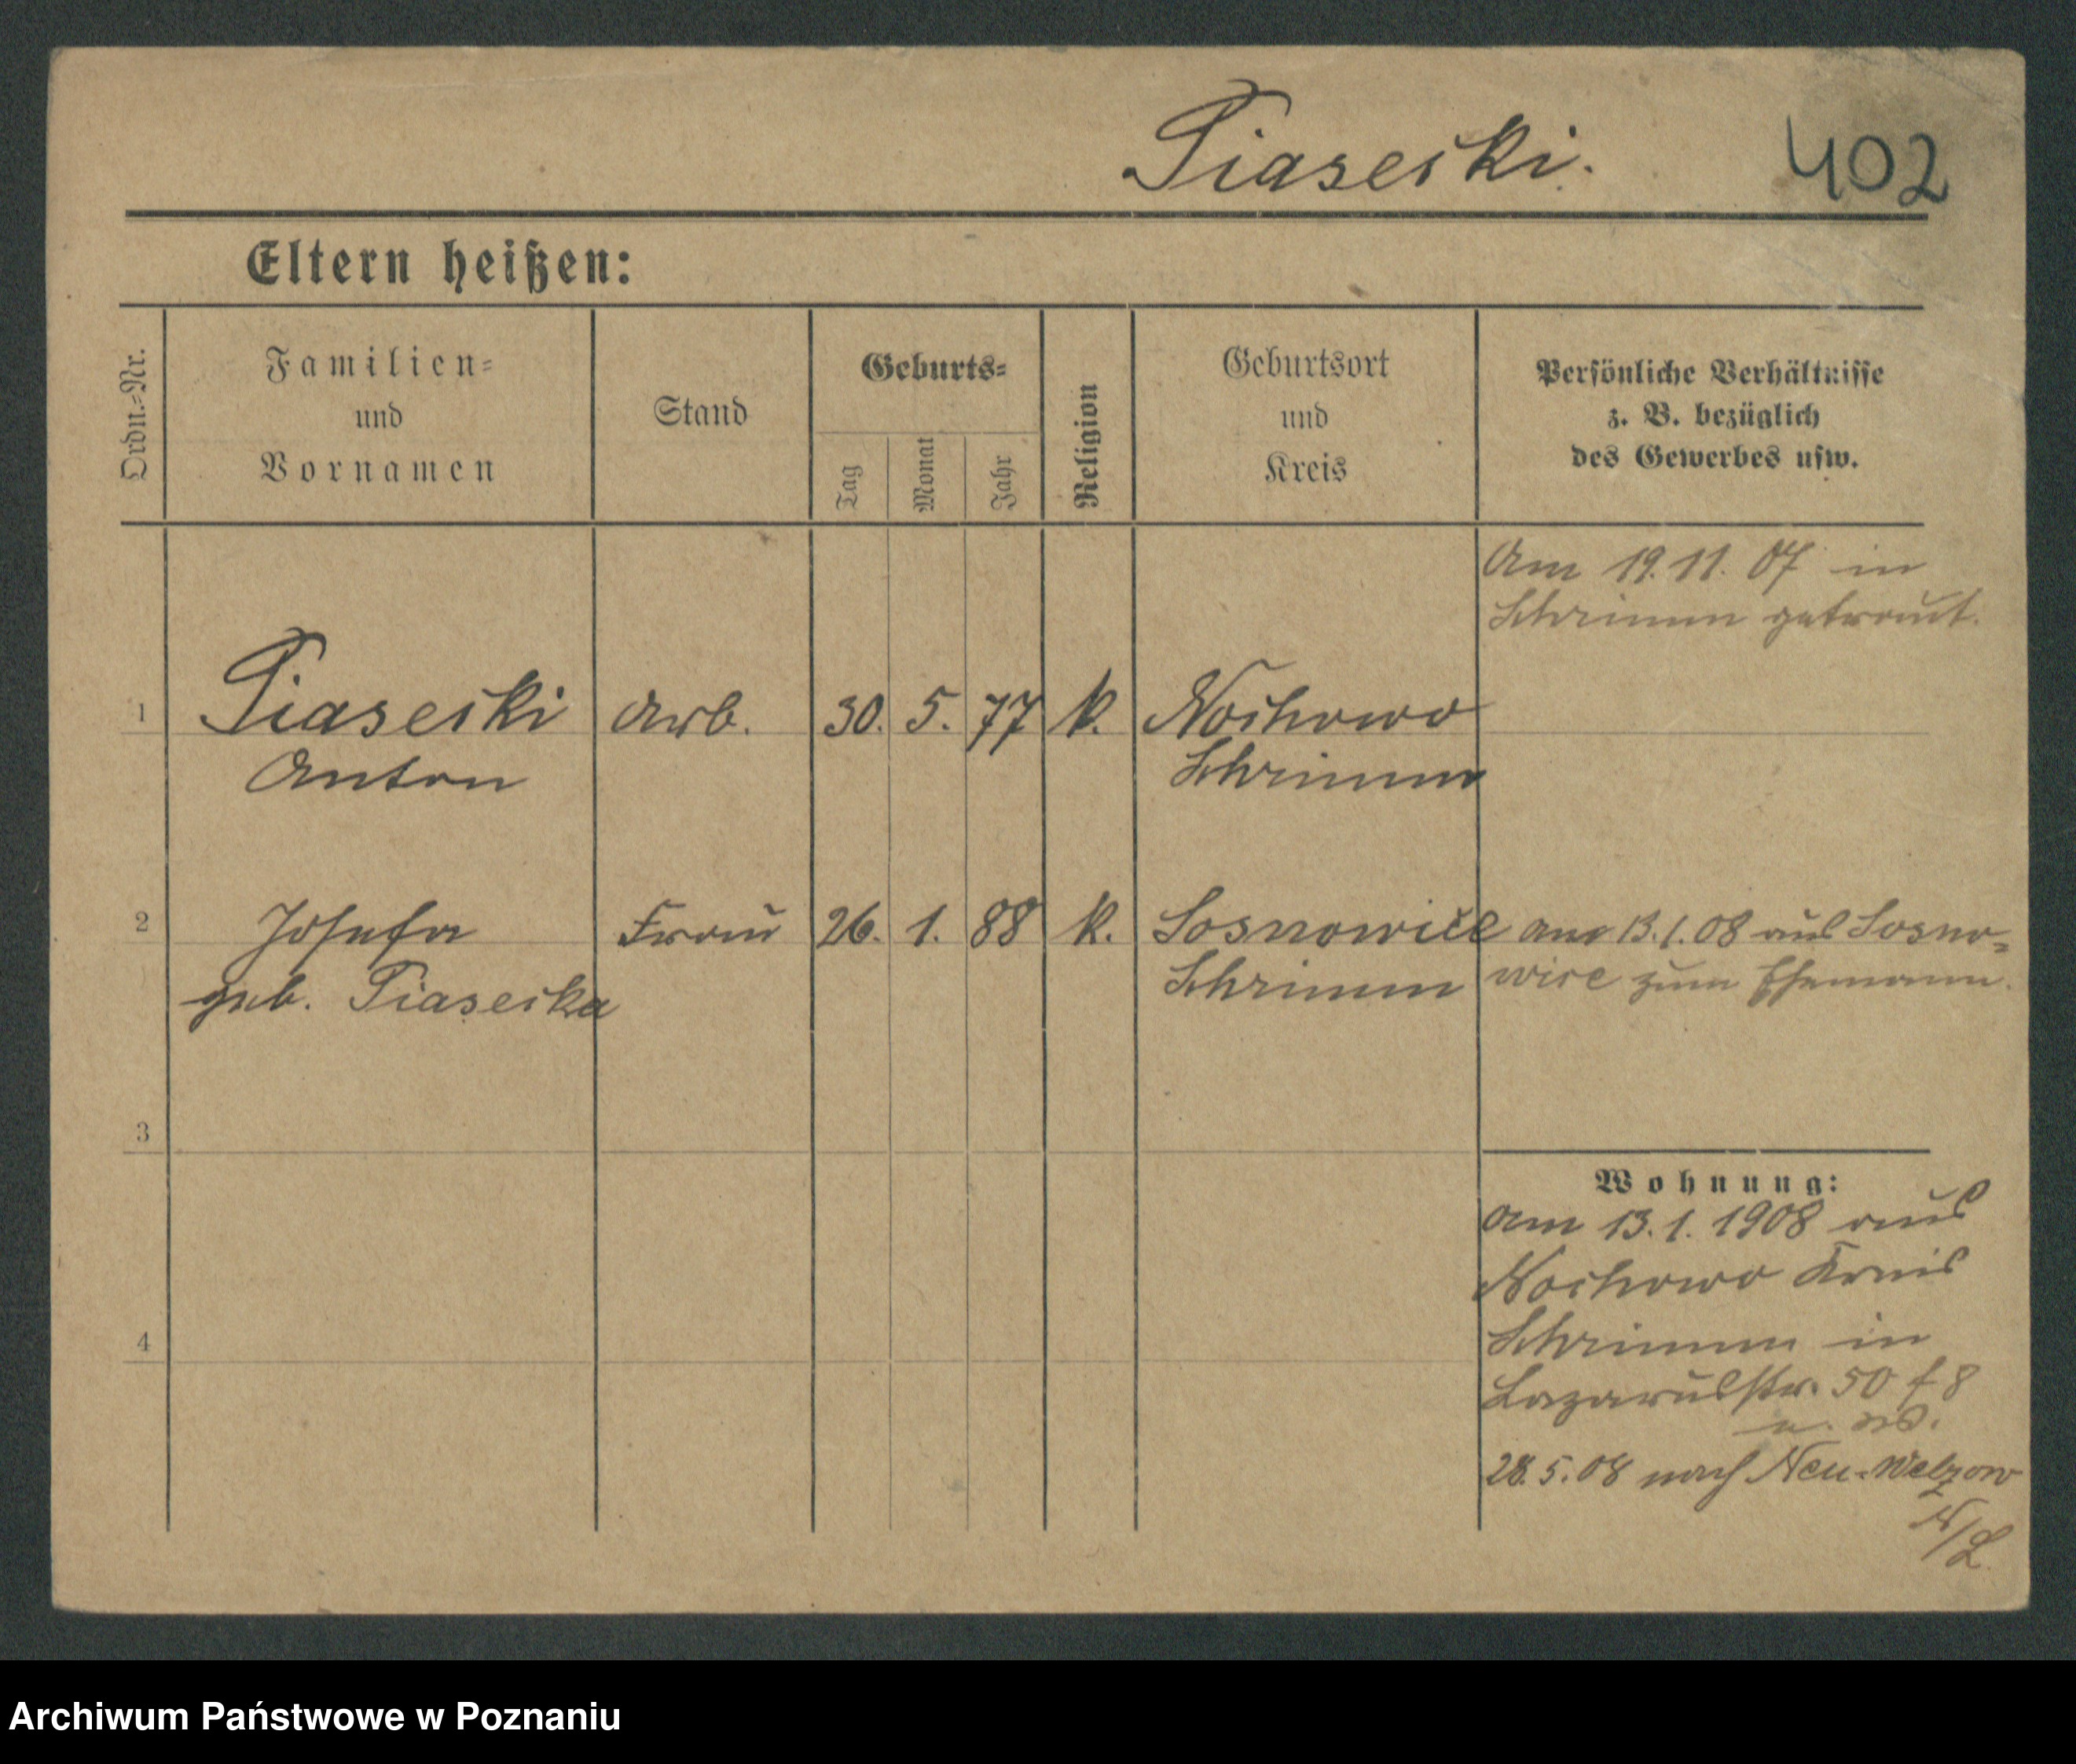 Piasecki.
402
Eltern heißen:
Ordn.-Nr.
Familien-
und
Vornamen
Stand
Geburts-
Tag
Monat
Jahr
Religion
Geburtsort
und
Kreis
Persönliche Verhältnisse
z. B. bezüglich
des Gewerbes usw.
Am 19.11.07 in
Schrimm getraut.
1 Piasecki Arb. 30. 5. 77 k. Nochowo
Anton Schrimm
2 Josefa Frau 26. 1. 88 k. Sosnowice am 13.1.08 aus Sosno-
geb. Piasecka Schrimm wice zum Ehemann.
3
Wohnung:
am 13.1.1908 aus
Nochowo Kreis
4 Schrimm in
Lazarusstr. 50 f 8
28.5.08 nach Neu-Welzow
N/L
Archiwum Państwowe w Poznaniu